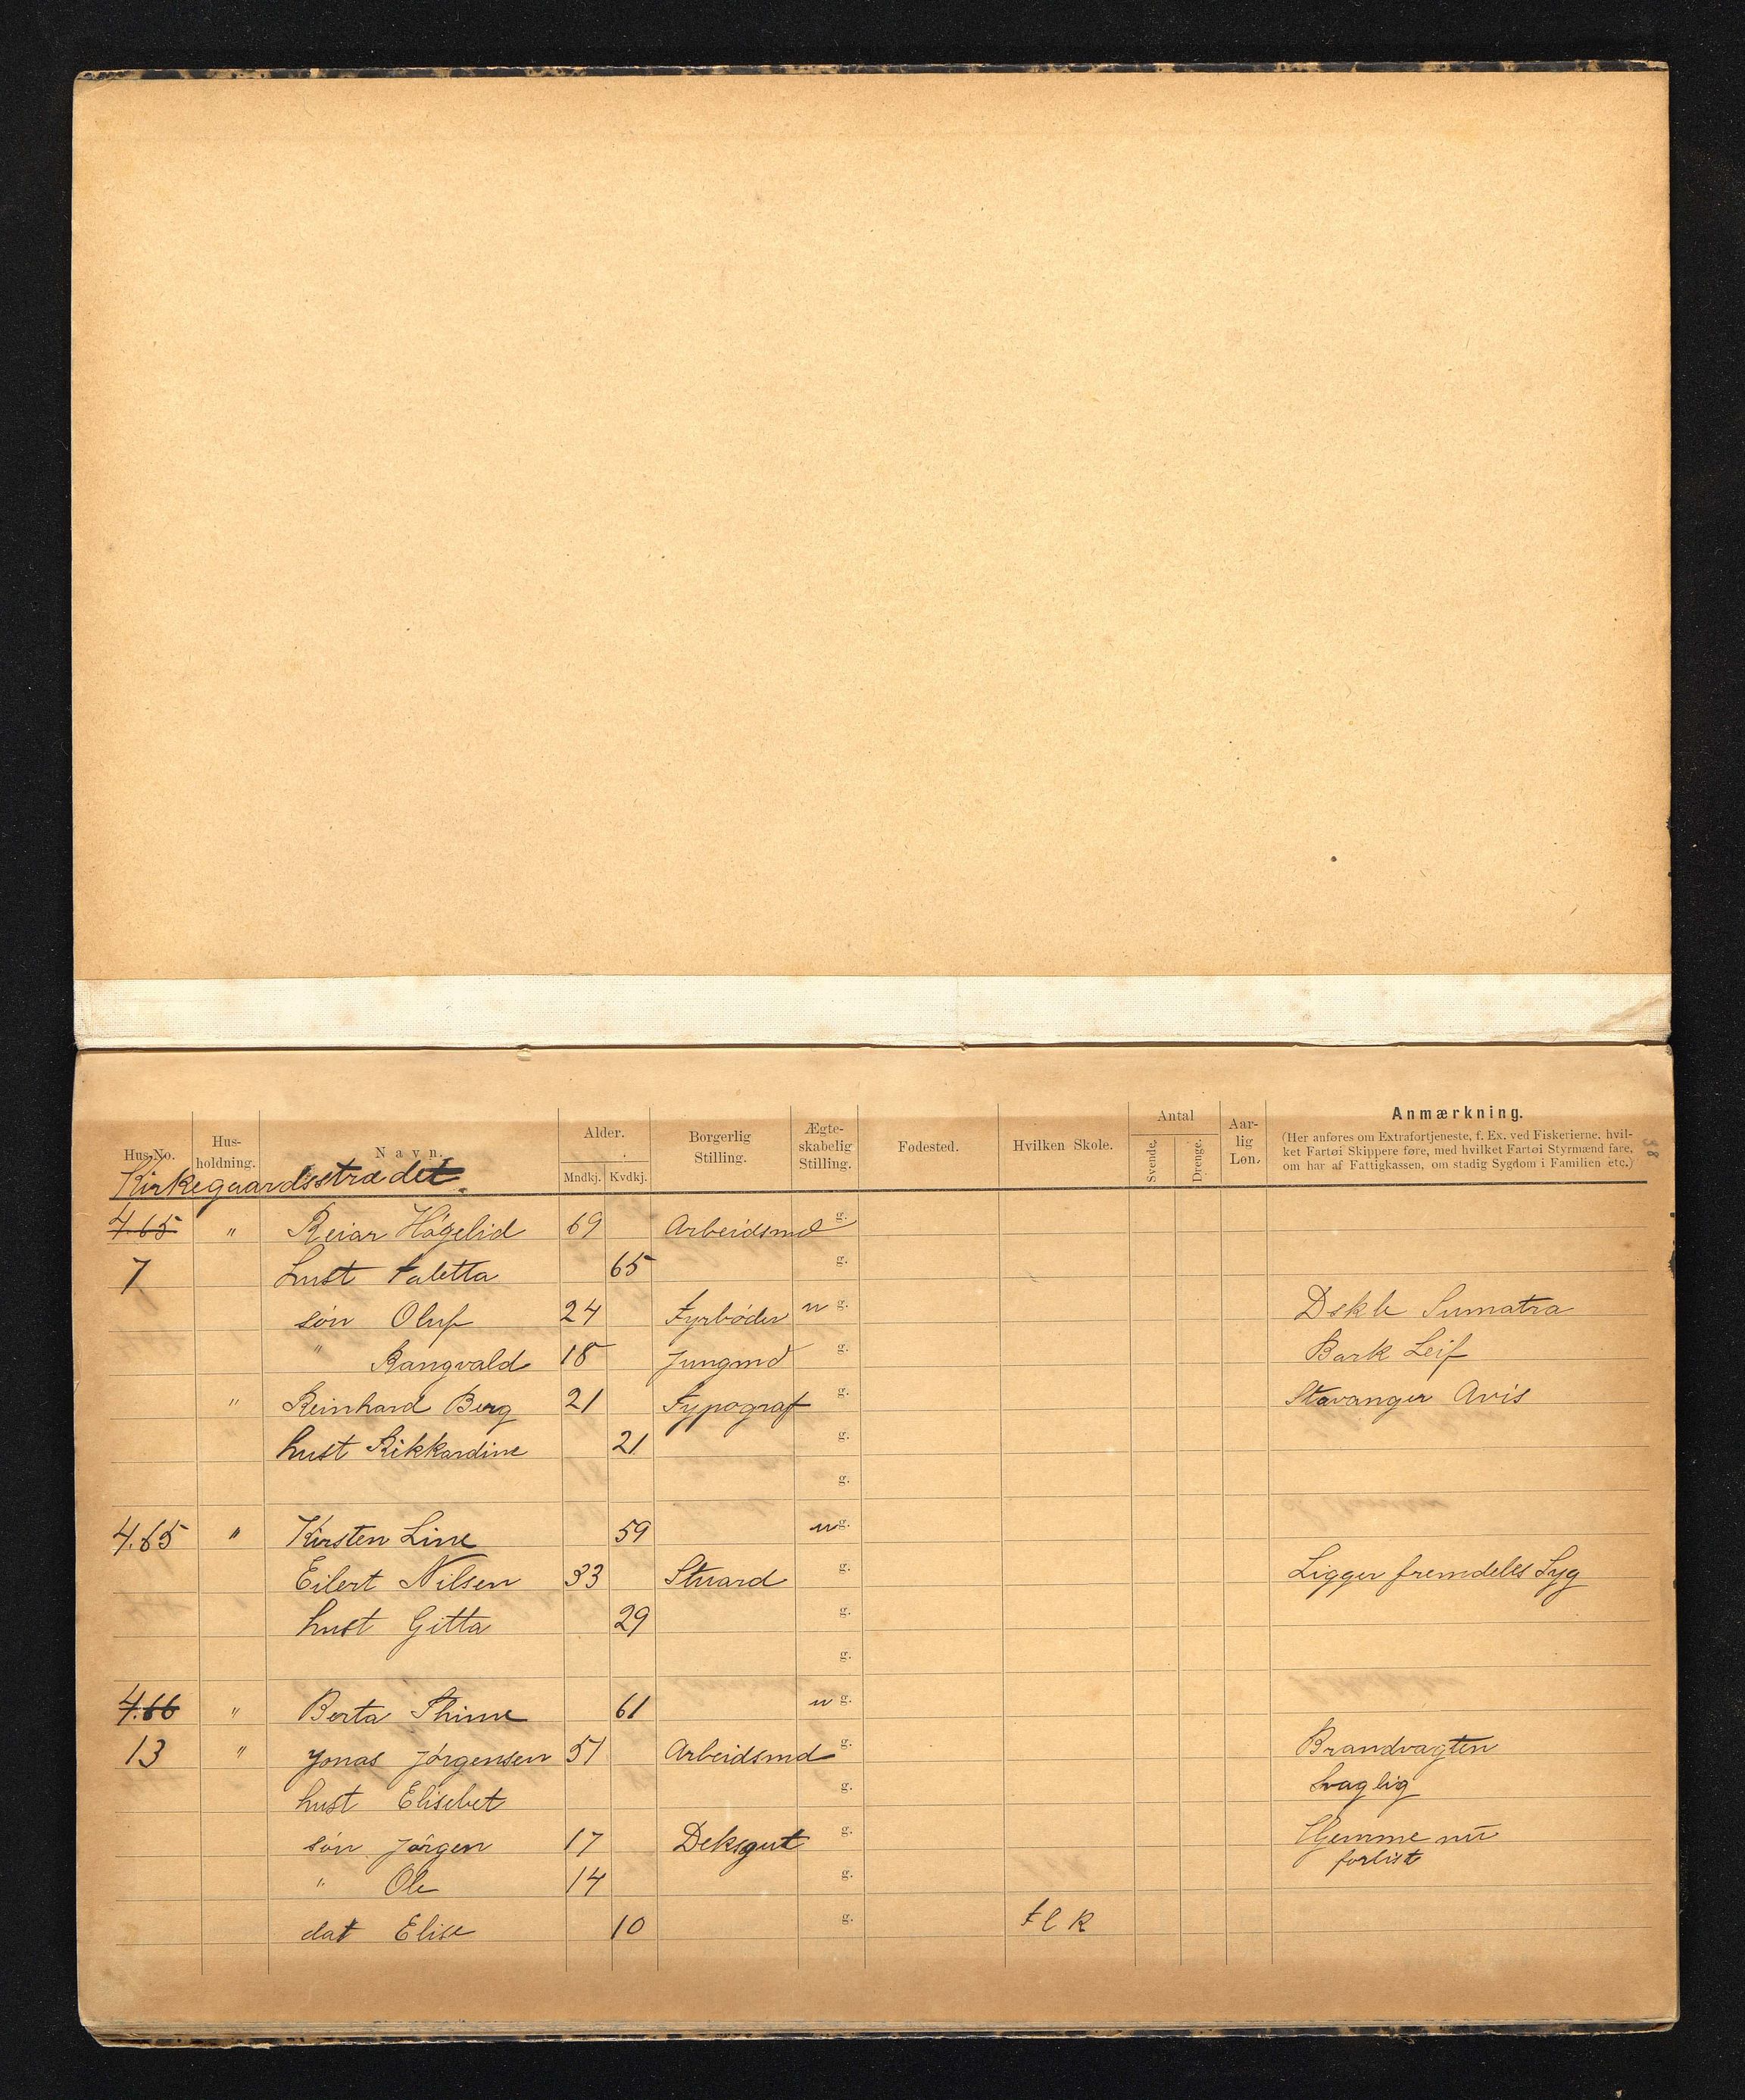 Hus-No. Hus-holdning. Navn. Alder. Mndkj. Kvdkj. Borgerlig Stilling. Ægte-skabelig Stilling. Fødested. Hvilken Skole. Antal Svende. Drenge. Aar-lig Løn. Anmærkning.
(Her anføres om Extrafortjeneste, f. Ex. ved Fiskerierne, hvil-
ket Fartøi Skippere føre, med hvilket Fartøi Styrmænd fare,
om har af Fattigkassen, om stadig Sygdom i Familien etc.)
38
Kirkegaardsstrædet.
4.65 " Reiar Högelid 69 Arbeidsmd g.
7 hust Taletta 65 g.
søn Oluf 24 Fyrbøder u g. Dskb Sumatra
" Rangvald 18 Jungmd g. Bark Leif
" Reinhard Berg 21 Typograf g. Stavanger Avis
hust Rikkardine 21 g.
g.
4.65 " Kirsten Line 59 u g.
Eilert Nilsen 33 Stuard g. Ligger fremdeles Syg
hust Gitta 29 g.
g.
4.66 " Berta Thime 61 u g.
13 " Jonas Jørgensen 51 Arbeidsmd g. Brandvagten
hust Elisebet g. Svaglig
søn Jörgen 17 Deksgut g. Hjemme nu
forlist
" Ole 14 g.
dat Elise 10 g. t l k